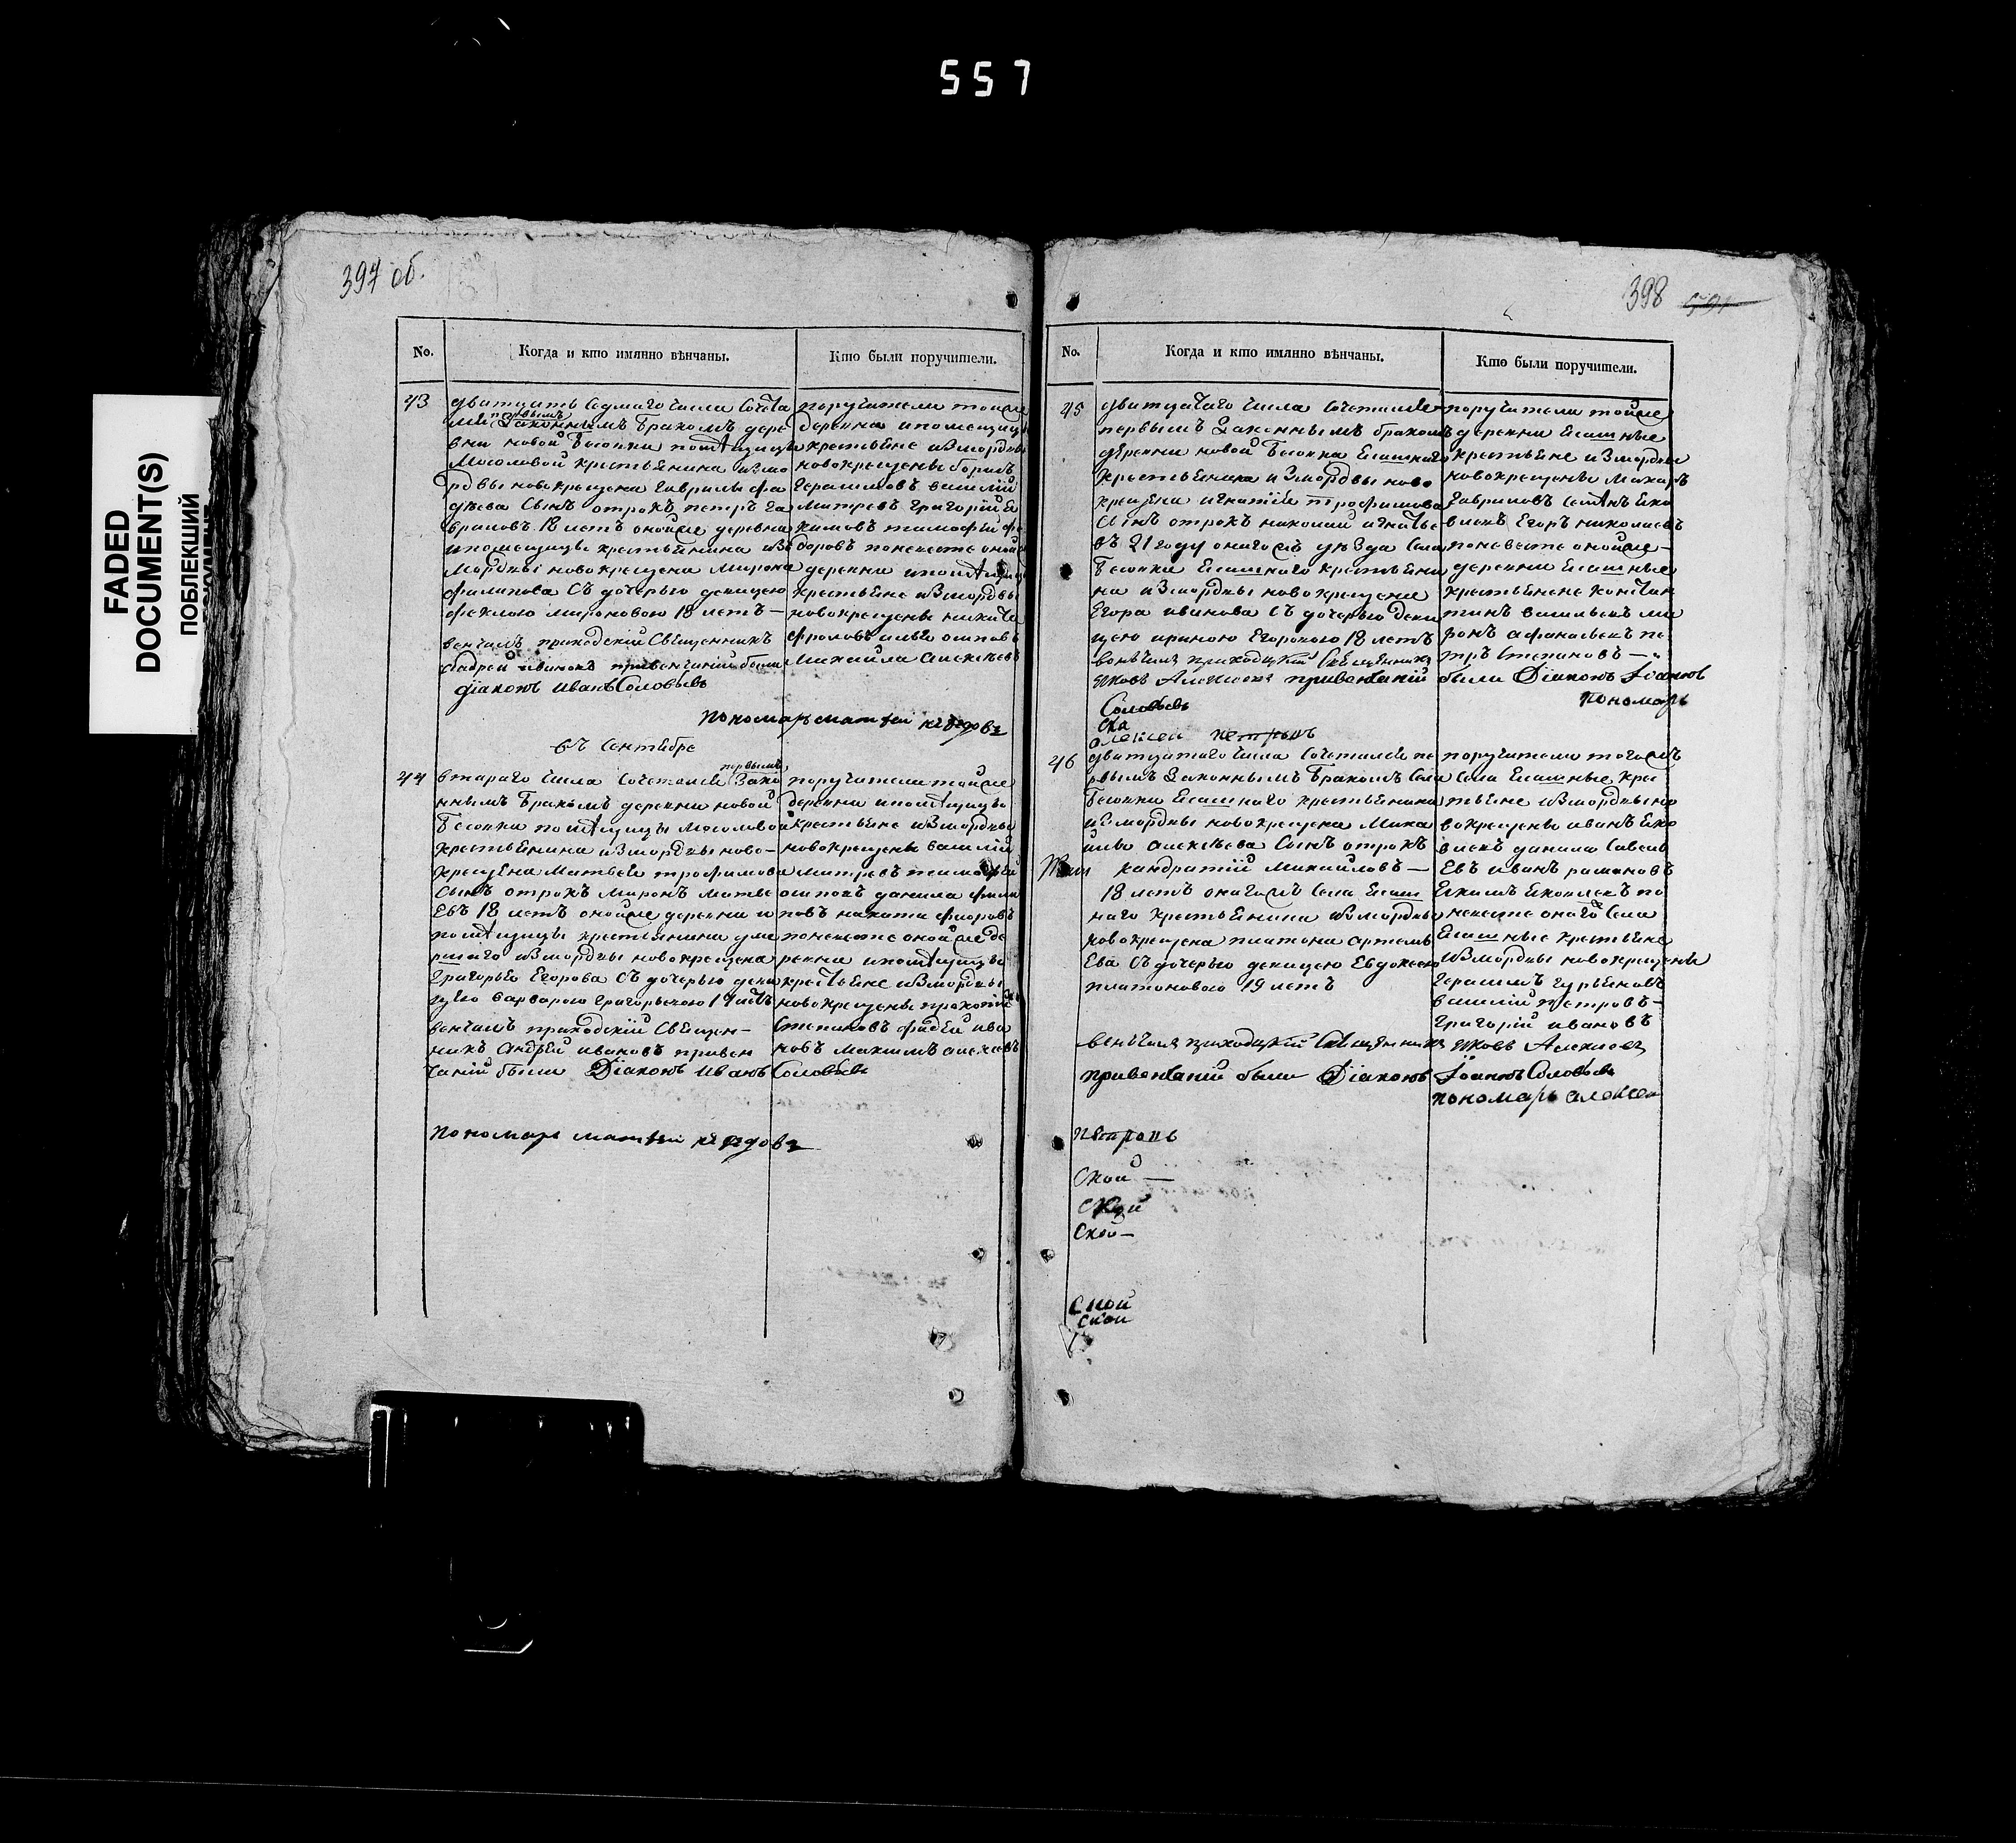 557
FADED
DOCUMENT(S)
ПОБЛЕКШИЙ
397 об.
No.
Когда и кто имянно вѣнчаны.
Кто были поручители.
43
дватцать седмаго числа сочета
лись первымъ законнымъ бракомъ дере
вни новой Тесовки помѣщицы
Мосоловой крестьянина измо
рдвы новокрещена гаврилы фа
дѣева сынъ отрокъ петръ га
вриловъ 18 летъ оной же деревни
помещицы крестьянина изъ
мордвы новокрещена мирона
филипова съ дочерью девицею
феклою мироновою 18 летъ —
венчалъ приходскій священникъ
Андрей ивановъ привенчаніи были
діаконъ иванъ Соловьевъ
пономарь матвеи
поручители тойже
деревни помещицы
крестьяне измордвы
новокрещены борисъ
герасимовъ василій
митревъ григорій е
кимовъ тимофѣй фе
доровъ поневесте оной
деревни помѣщицы
крестьяне измордвы
новокрещены никита
фроловъ осиповъ
михайла алексѣевъ
въ Сентябре
44
втараго числа сочетались первымъ зако
ннымъ бракомъ деревни новой
Тесовки помѣщицы мосоловой
крестьянина измордвы ново-
крещена Матвея трофимова
сынъ отрокъ миронъ матве
евъ 18 летъ оной же деревни
помѣщицы крестьянина уме
ршаго измордвы новокрещена
григорья Егорова съ дочерью деви
цею варварою григорьевою летъ
венчалъ приходскій священ-
никъ Андрей ивановъ привен
чаніи были Діаконъ иванъ Соловьевъ
пономарь матвеи
поручители тойже
деревни помѣщицы
крестьяне измордвы
новокрещены василій
митревъ тимофей
осиповъ данила фили
повъ никита фядоровъ
поневесте оной же де
ревни помѣщицы
крестьяне измордвы
новокрещены прокофій
степановъ фадей ива
новъ максимъ алексеевъ
398
No.
Когда и кто имянно вѣнчаны.
Кто были поручители.
45
дватцатаго числа сочетались
первымъ законнымъ бракомъ
деревни новой Тесовки ясашнаго
крестьянина измордвы ново
крещена игнатія трофимова
сынъ отрокъ николай игнатье
въ 21 году онагожъ уѣзда села
Тесовки ясашнаго крестьяни
на измордвы новокрещена
Егора иванова съ дочерью деви
цею ириною Егоровою 18 летъ
венчалъ приходцкій священникъ
Яковъ Алексеевъ привенчаніи были Діаконъ Іоаннъ
Соловьевъ пономарь
алексеи петровъ
поручители тойже
деревни ясашные
крестьяне измордвы
новокрещены макаръ
гавриловъ семенъ яко
влевъ Егоръ николаевъ
поневесте оной же —
деревни ясашные
крестьяне констан
тинъ васильевъ ми
ронъ афонасьевъ пе
тръ степановъ —
46
дватцатаго числа сочетались пе
рвымъ законнымъ бракомъ села
Тесовки ясашнаго крестьянина
измордвы новокрещена миха
йлы алексѣева сынъ отрокъ
кандратій михайловъ —
18 летъ онагожъ села ясаш
наго крестьянина измордвы
новокрещена платона артемь
ева съ дочерью девицею Евдокеею
платоновою 19 летъ
поручители тогожъ
села ясашные крес
тьяне измордвы но
вокрещены иванъ яко
влевъ данила савель
евъ иванъ романовъ
якимъ яковлевъ по
невесте онаго села
ясашные крестьяне
измордвы новокрещены
герасимъ гурьяновъ
василій петровъ —
григорій ивановъ
венчалъ приходцкій священникъ Яковъ Алексеевъ
привенчаніи были Діаконъ Іоаннъ Соловьевъ
пономарь алексеи
петровъ
скои —
скои
скои —
скои
скои